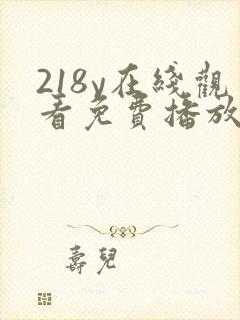 218v在綫觀
看免費播放
壽兒